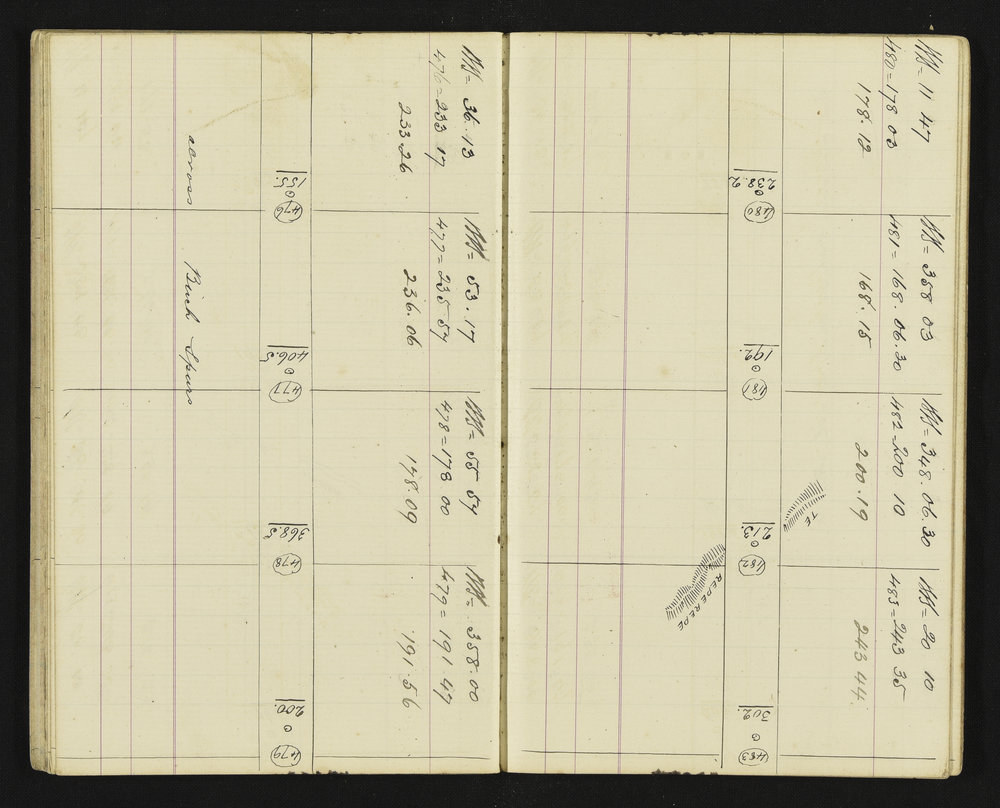 BS = 36.13
476 = 233 17
233.26
155.
476
across
BS = 53.17
477 = 235 57
236.06
406.5
477
Bush Spurs
BS = 55 57
478 = 178 00
178.09
368.5
478
BS = 358.00
479 = 191 47
191.56
200.
479
BS = 11 47
480 = 178 03
178.12
238.2
480
BS = 358 03
481 = 168.06.30
168.15
192.
481
BS = 348.06.30
482 = 200 10
200.19
TE
213.
482
REPEREPE
BS = 20 10
483 = 243 35
243 44
302.
483